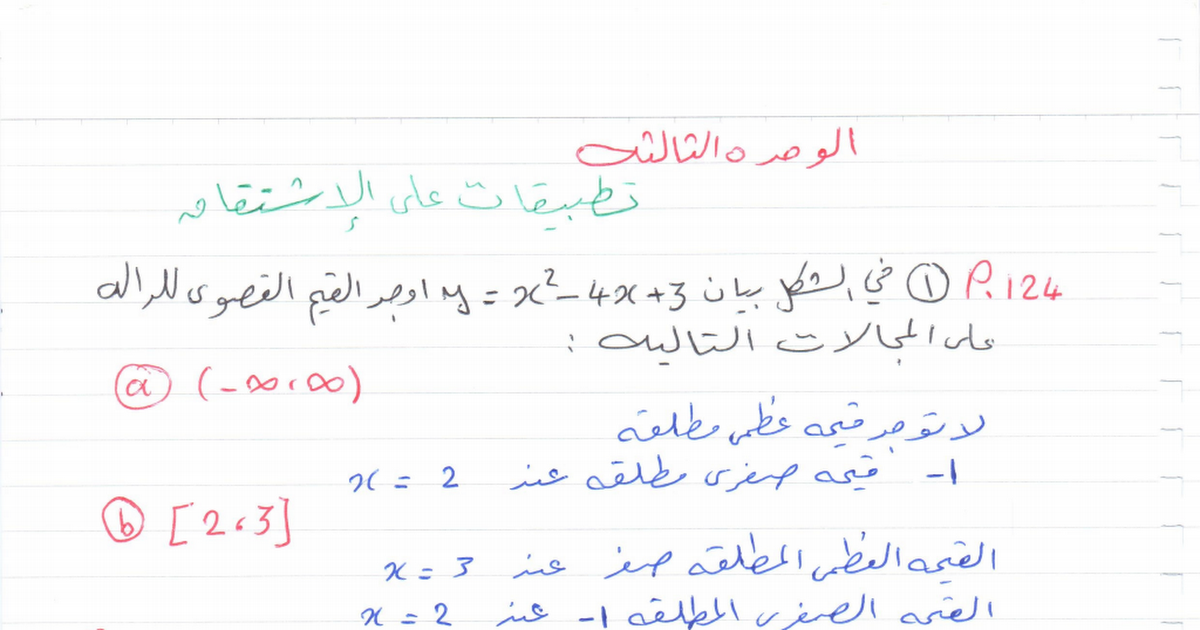 الوحده الثالثه
تطبيقات على الإشتقاق
P.124 ① في الشكل بيان y = x² - 4x + 3 اوجد القيم القصوى للداله
على المجالات التاليه :
ⓐ (-∞،∞)
لا توجد قيمه عظمى مطلقه
-1 قيمه صغرى مطلقه عند x = 2
ⓑ [2،3]
القيمه العظمى المطلقه صفر عند x = 3
القيمه الصغرى المطلقه -1 عند x = 2